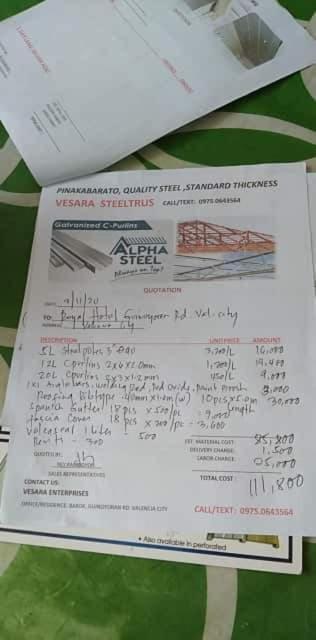 PINAKABARATO, QUALITY STEEL ,STANDARD THICKNESS
VESARA STEELTRUS CALL/TEXT: 0975.0643564
Galvanized C-Purlins
ALPHA STEEL
Always on Top!
QUOTATION
DATE 9/11/20
TO: Hotel Rd. Val. city
ADDRESS: Valencia City
DESCRIPTION UNIT PRICE AMOUNT
5L Steel 3" 3,200/L 16,000
12L Cpurlins 2x6x1.0mm 1,200/L 14,400
20L Cpurlins 2x3x1.2mm 450/L 9,000
welding Rod, Red Oxide, Paint Brush
Roofing Ribtype .40mm x1.0m(w) 10pcs x5.0m 30,000
Spanish Gutter 18 pcs x 500/pc = 9,000
Fascia Cover 18 pcs x 200/pc = 3,600
1 liter - 500
- 300
EST. MATERIAL COST:
DELIVERY CHARGE: 1,500
LABOR CHARGE:
QUOTED BY:
SALES REPRESENTATIVES
TOTAL COST 111,800
CONTACT US:
VESARA ENTERPRISES
OFFICE/RESIDENCE: BAROK, GUINOYORAN RD. VALENCIA CITY
CALL/TEXT: 0975.0643564
• Also available in perforated